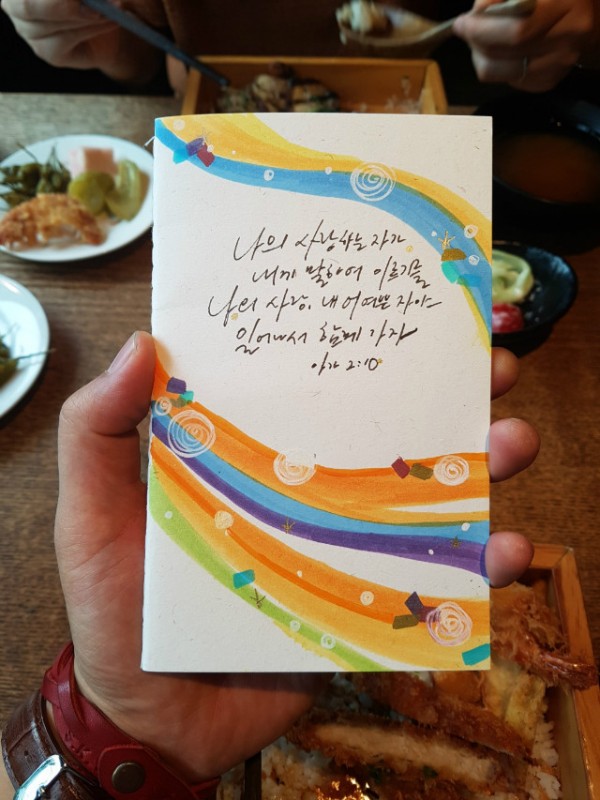 나의 사랑하는 자가
내게 말하여 이르기를
나의 사랑, 내 어여쁜 자야
일어나서 함께 가자
아가 2:10